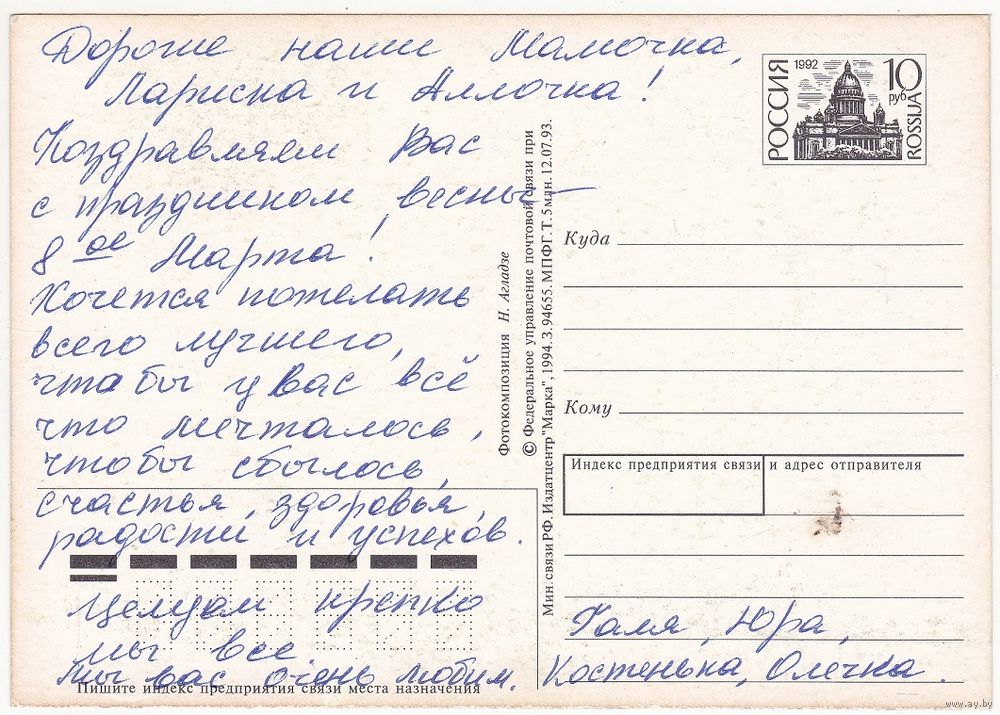 Дорогие наши Мамочка,
Лариска и Аллочка!
Поздравляем Вас
с праздником весны –
8 ое Марта!
Хочется пожелать
всего лучшего,
чтобы у вас всё
что мечталось,
чтобы сбылось,
счастья, здоровья,
радости и успехов.
Целуем крепко
мы все
Мы вас очень любим.
Пишите индекс предприятия связи места назначения
Фотокомпозиция Н. Агладзе
© Федеральное управление почтовой связи при
Мин. связи РФ. Издатцентр "Марка", 1994. З. 94655. МПФГ. Т. 5 млн. 12.07.93.
РОССИЯ
1992
10
руб
ROSSIJA
Куда
Кому
Индекс предприятия связи и адрес отправителя
Галя, Юра,
Костенька, Олечка.
www.ay.by